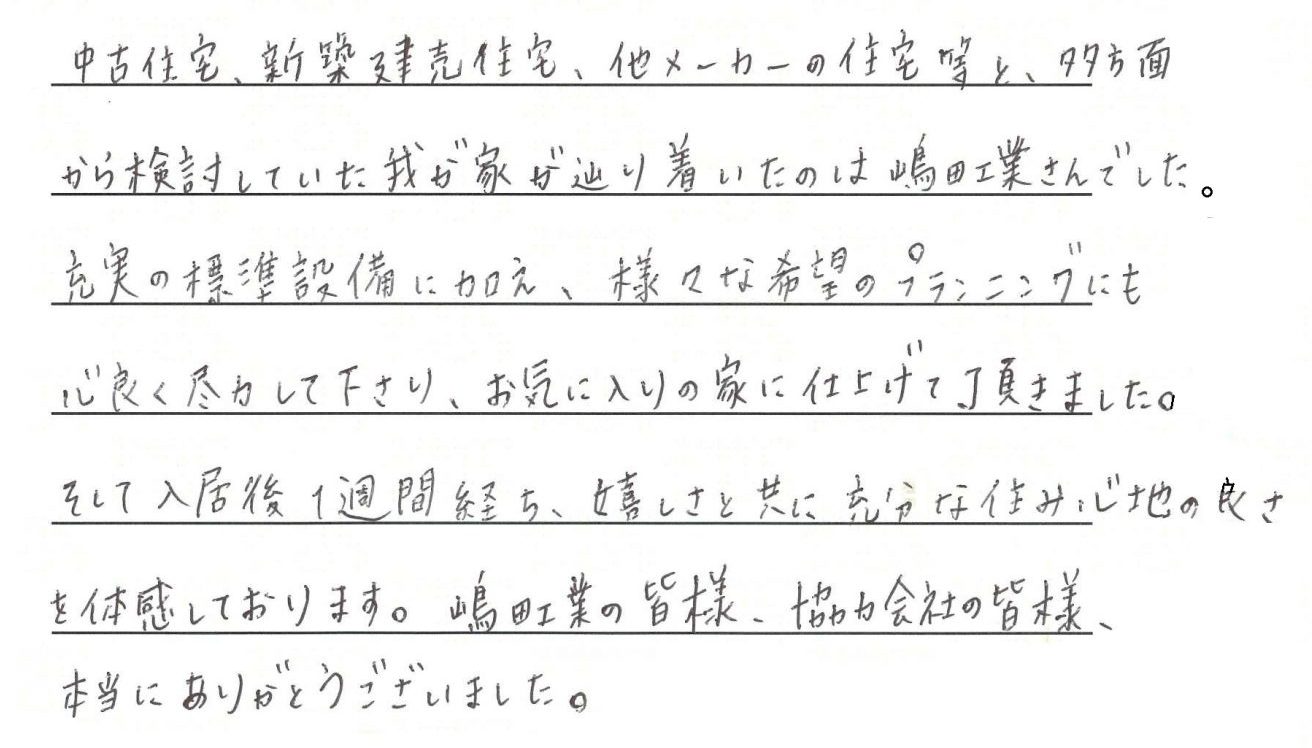 中古住宅、新築建売住宅、他メーカーの住宅等と、多方面
から検討していた我が家が辿り着いたのは嶋田工業さんでした。
充実の標準設備に加え、様々な希望のプランニングにも
心良く尽力して下さり、お気に入りの家に仕上げて頂きました。
そして入居後1週間経ち、嬉しさと共に充分な住み心地の良さ
を体感しております。嶋田工業の皆様、協力会社の皆様、
本当にありがとうございました。